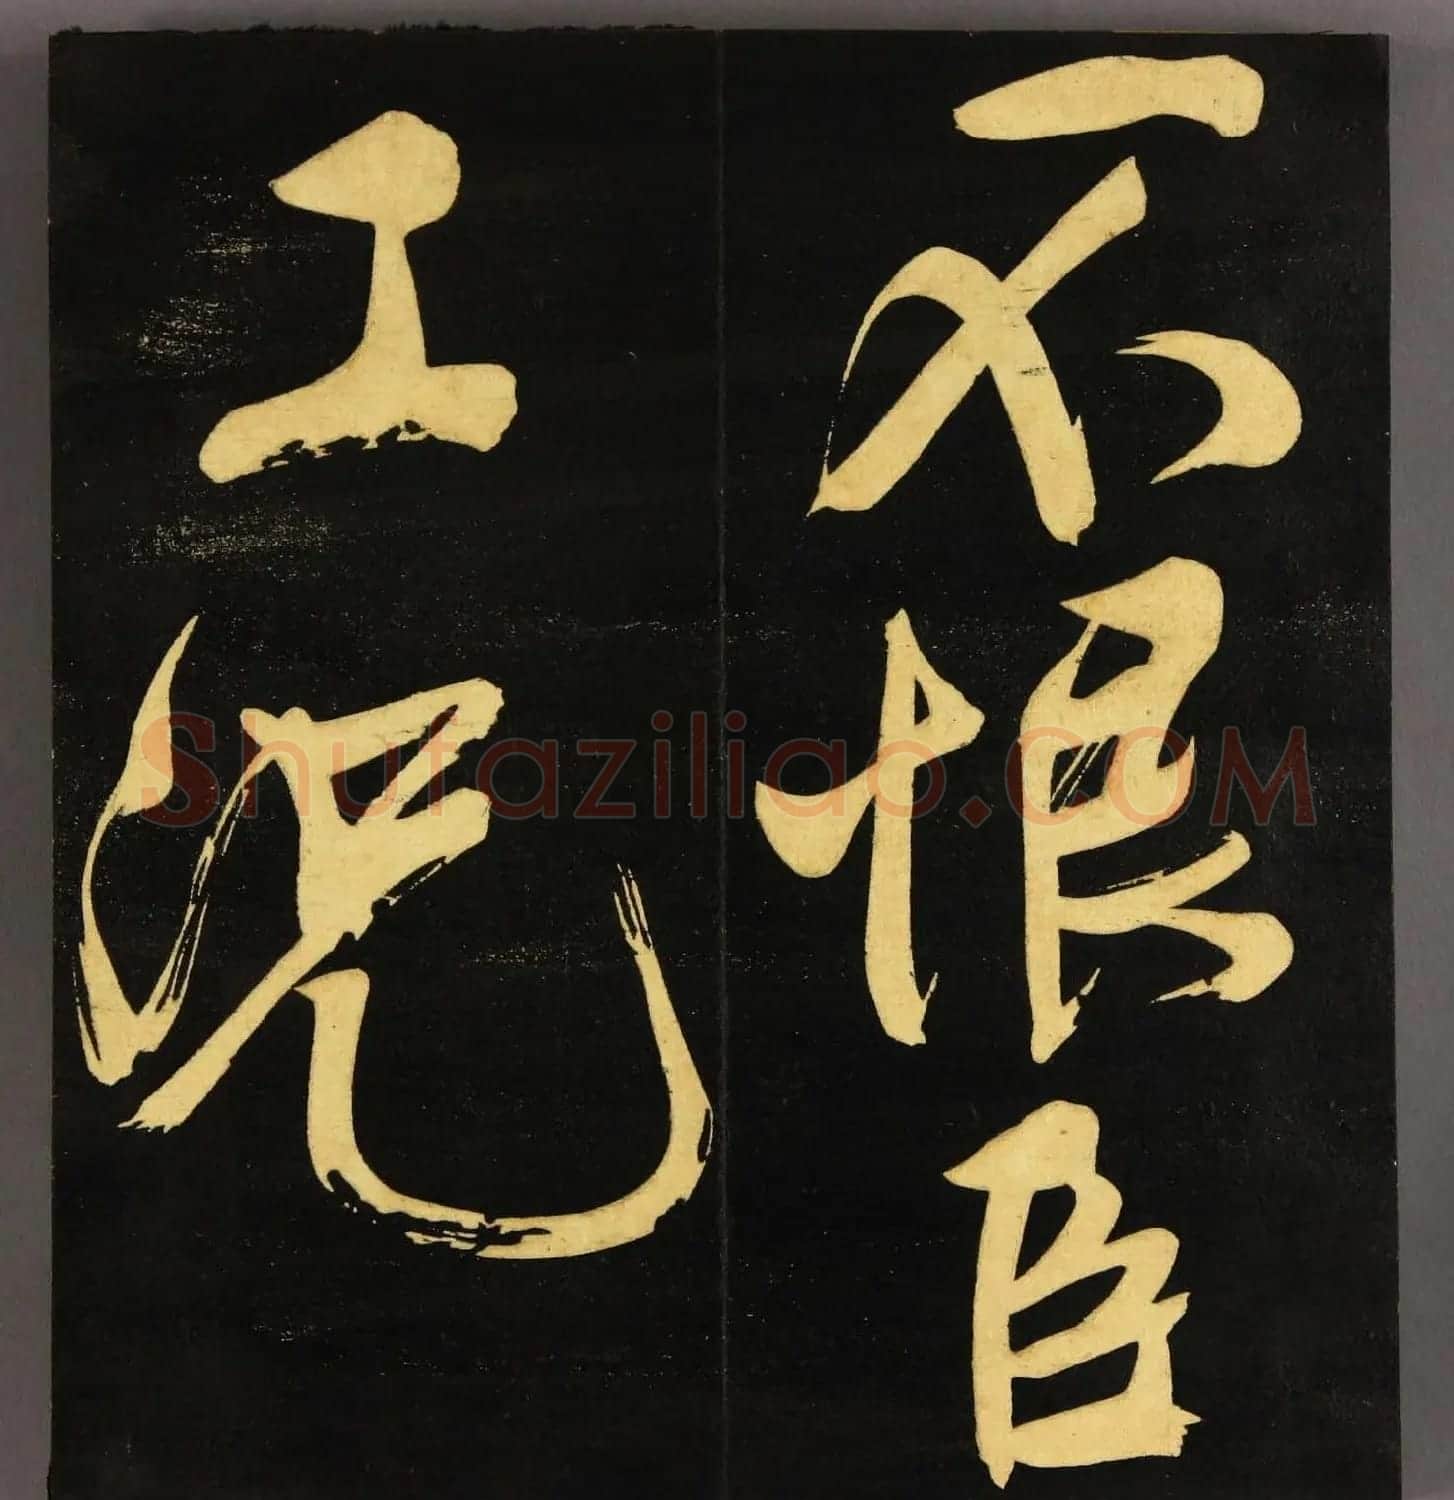 不恨臣
工況
Shufaziliao.COM